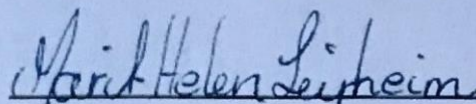 Marit Helen Leirheim